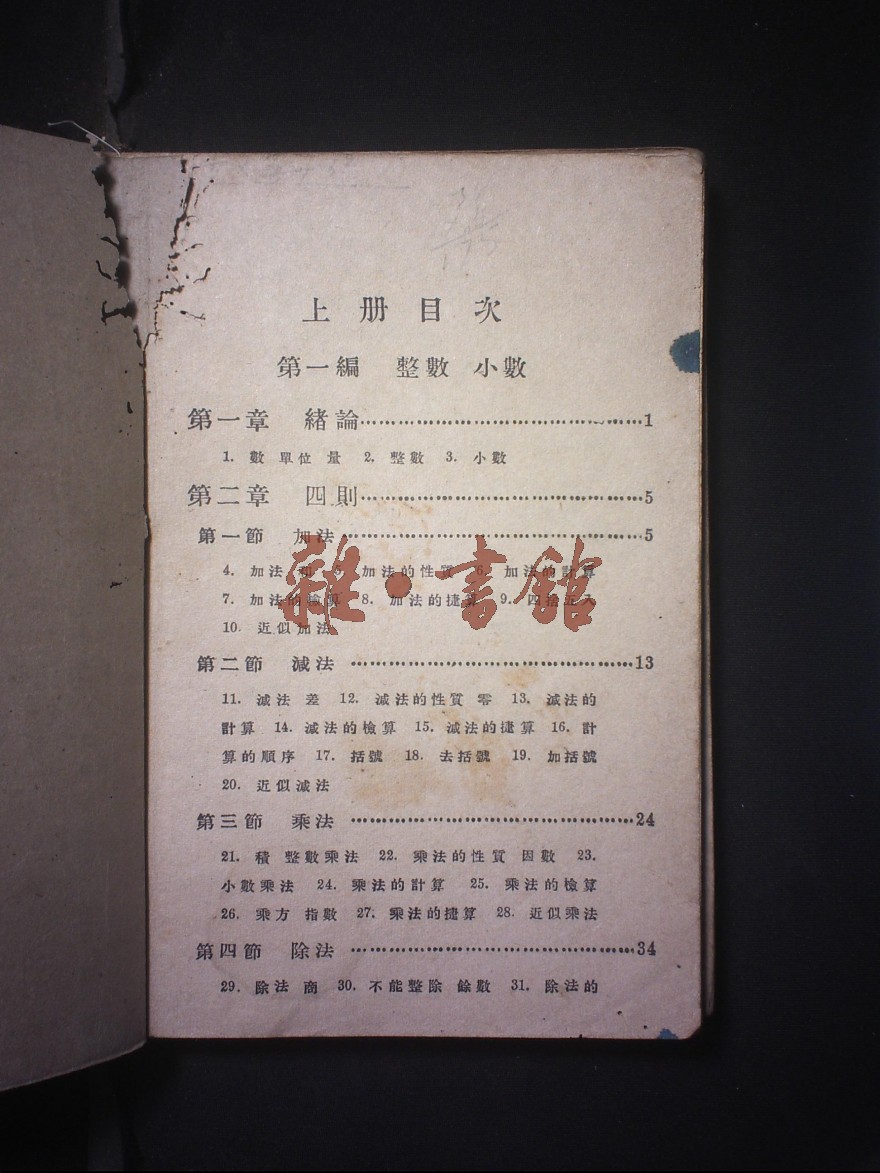 上册目次
第一編 整數 小數
第一章 緒論……………………………………1
1. 數 單位 量 2. 整數 3. 小數
第二章 四則……………………………………5
第一節 加法……………………………………5
4. 加法 和 5. 加法的性質 6. 加法的計算
7. 加法的檢算 8. 加法的捷算 9. 四捨五入
10. 近似加法
雜·書館
第二節 減法……………………………………13
11. 減法 差 12. 減法的性質 零 13. 減法的
計算 14. 減法的檢算 15. 減法的捷算 16. 計
算的順序 17. 括號 18. 去括號 19. 加括號
20. 近似減法
第三節 乘法……………………………………24
21. 積 整數乘法 22. 乘法的性質 因數 23.
小數乘法 24. 乘法的計算 25. 乘法的檢算
26. 乘方 指數 27. 乘法的捷算 28. 近似乘法
第四節 除法……………………………………34
29. 除法 商 30. 不能整除 餘數 31. 除法的